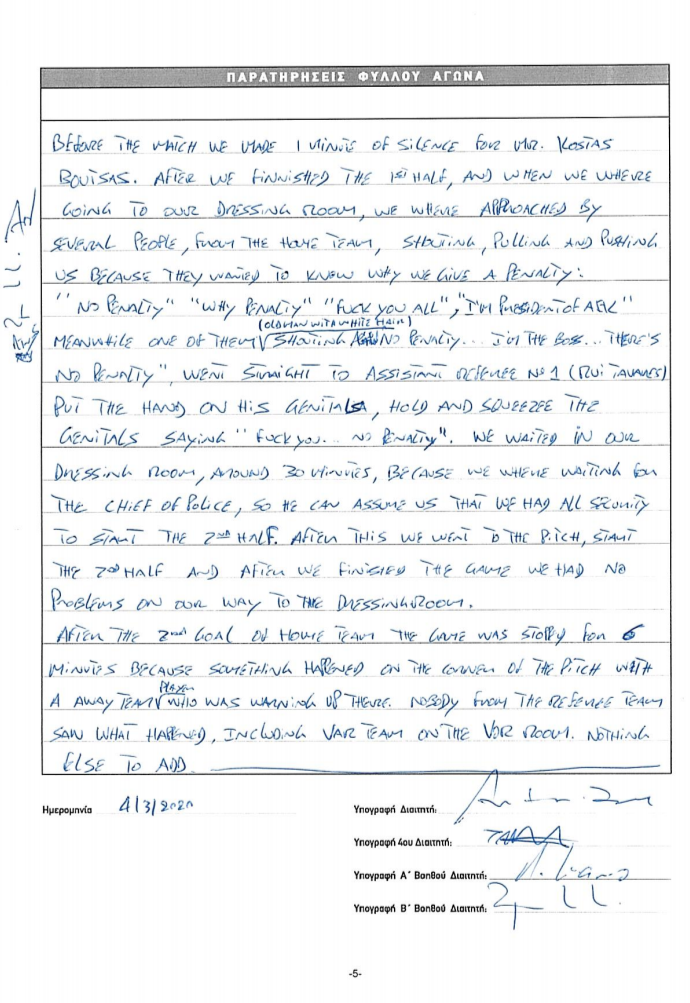 ΠΑΡΑΤΗΡΗΣΕΙΣ ΦΥΛΛΟΥ ΑΓΩΝΑ
BEFORE THE MATCH WE MADE 1 MINUTE OF SILENCE FOR MR. KOSTAS
BOUTSAS. AFTER WE FINNISHED THE 1ST HALF, AND WHEN WE WHERE
GOING TO OUR DRESSING ROOM, WE WHERE APPROACHED BY
SEVERAL PEOPLE, FROM THE HOME TEAM, SHOUTING, PULLING AND PUSHING
US BECAUSE THEY WANTED TO KNEW WHY WE GIVE A PENALTY:
"NO PENALTY" "WHY PENALTY" "FUCK YOU ALL", "I'M PRESIDENT OF AEK"
(OLD MAN WITH WHITE HAIR)
MEANWHILE ONE OF THEM SHOUTING NO PENALTY... I'M THE BOSS... THERE'S
NO PENALTY", WENT STRAIGHT TO ASSISTANT REFEREE Nº1 (RUI TAVARES)
PUT THE HAND ON HIS GENITALS, HOLD AND SQUEEZEE THE
GENITALS SAYING "FUCK YOU... NO PENALTY". WE WAITED IN OUR
DRESSING ROOM, AROUND 30 MINUTES, BECAUSE WE WHERE WAITING FOR
THE CHIEF OF POLICE, SO HE CAN ASSUME US THAT WE HAD ALL SECURITY
TO START THE 2ND HALF. AFTER THIS WE WENT TO THE PITCH, START
THE 2ND HALF AND AFTER WE FINISHED THE GAME WE HAD NO
PROBLEMS ON OUR WAY TO THE DRESSINGROOM.
AFTER THE 2ND GOAL OF HOME TEAM THE GAME WAS STOPED FOR 6
MINUTES BECAUSE SOMETHING HAPPENED ON THE CORNER OF THE PITCH WITH
PLAYER
A AWAY TEAM WHO WAS WARNING UP THERE. NOBODY FROM THE REFEREE TEAM
SAW WHAT HAPPENED, INCLUDING VAR TEAM ON THE VOR ROOM. NOTHING
ELSE TO ADD.
Ημερομηνία 4/3/2020
Υπογραφή Διαιτητή:
Υπογραφή 4ου Διαιτητή:
Υπογραφή Α' Βοηθού Διαιτητή:
Υπογραφή Β' Βοηθού Διαιτητή:
-5-